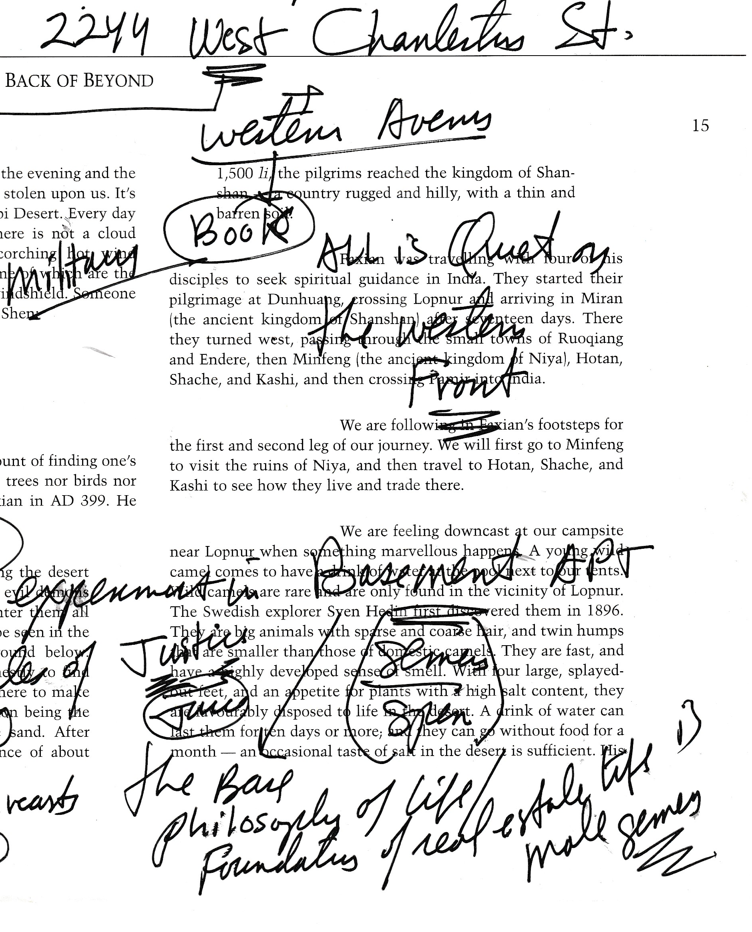 2244 West Charleston St.
BACK OF BEYOND
Western Avenue
15
the evening and the
stolen upon us. It's
bi Desert. Every day
here is not a cloud
corching hot wind
which are the
indshield. Someone
Shen
military
ount of finding one's
trees nor birds nor
xian in AD 399. He
ng the desert
evil demons
nter them all
be seen in the
ound below
to find
here to make
on being the
sand. After
nce of about
1,500 li, the pilgrims reached the kingdom of Shan-
shan, a country rugged and hilly, with a thin and
barren soil.
Book
All is Quiet on
the western
Front
Faxian was travelling with four of his
disciples to seek spiritual guidance in India. They started their
pilgrimage at Dunhuang, crossing Lopnur and arriving in Miran
(the ancient kingdom of Shanshan) after seventeen days. There
they turned west, passing through the small towns of Ruoqiang
and Endere, then Minfeng (the ancient kingdom of Niya), Hotan,
Shache, and Kashi, and then crossing Pamir into India.
We are following in Faxian's footsteps for
the first and second leg of our journey. We will first go to Minfeng
to visit the ruins of Niya, and then travel to Hotan, Shache, and
Kashi to see how they live and trade there.
We are feeling downcast at our campsite
near Lopnur when something marvellous happens. A young wild
camel comes to have a drink of water at the pool next to our tents.
Wild camels are rare and are only found in the vicinity of Lopnur.
The Swedish explorer Sven Hedin first discovered them in 1896.
They are big animals with sparse and coarse hair, and twin humps
that are smaller than those of domestic camels. They are fast, and
have a highly developed sense of smell. With four large, splayed-
out feet, and an appetite for plants with a high salt content, they
are favourably disposed to life in the desert. A drink of water can
last them for ten days or more; and they can go without food for a
month — an occasional taste of salt in the desert is sufficient. His
experiment in Basement APT
Justice
Semen
Sperm
the Base
Philosophy of life/
Foundation of real estate life is
male semen